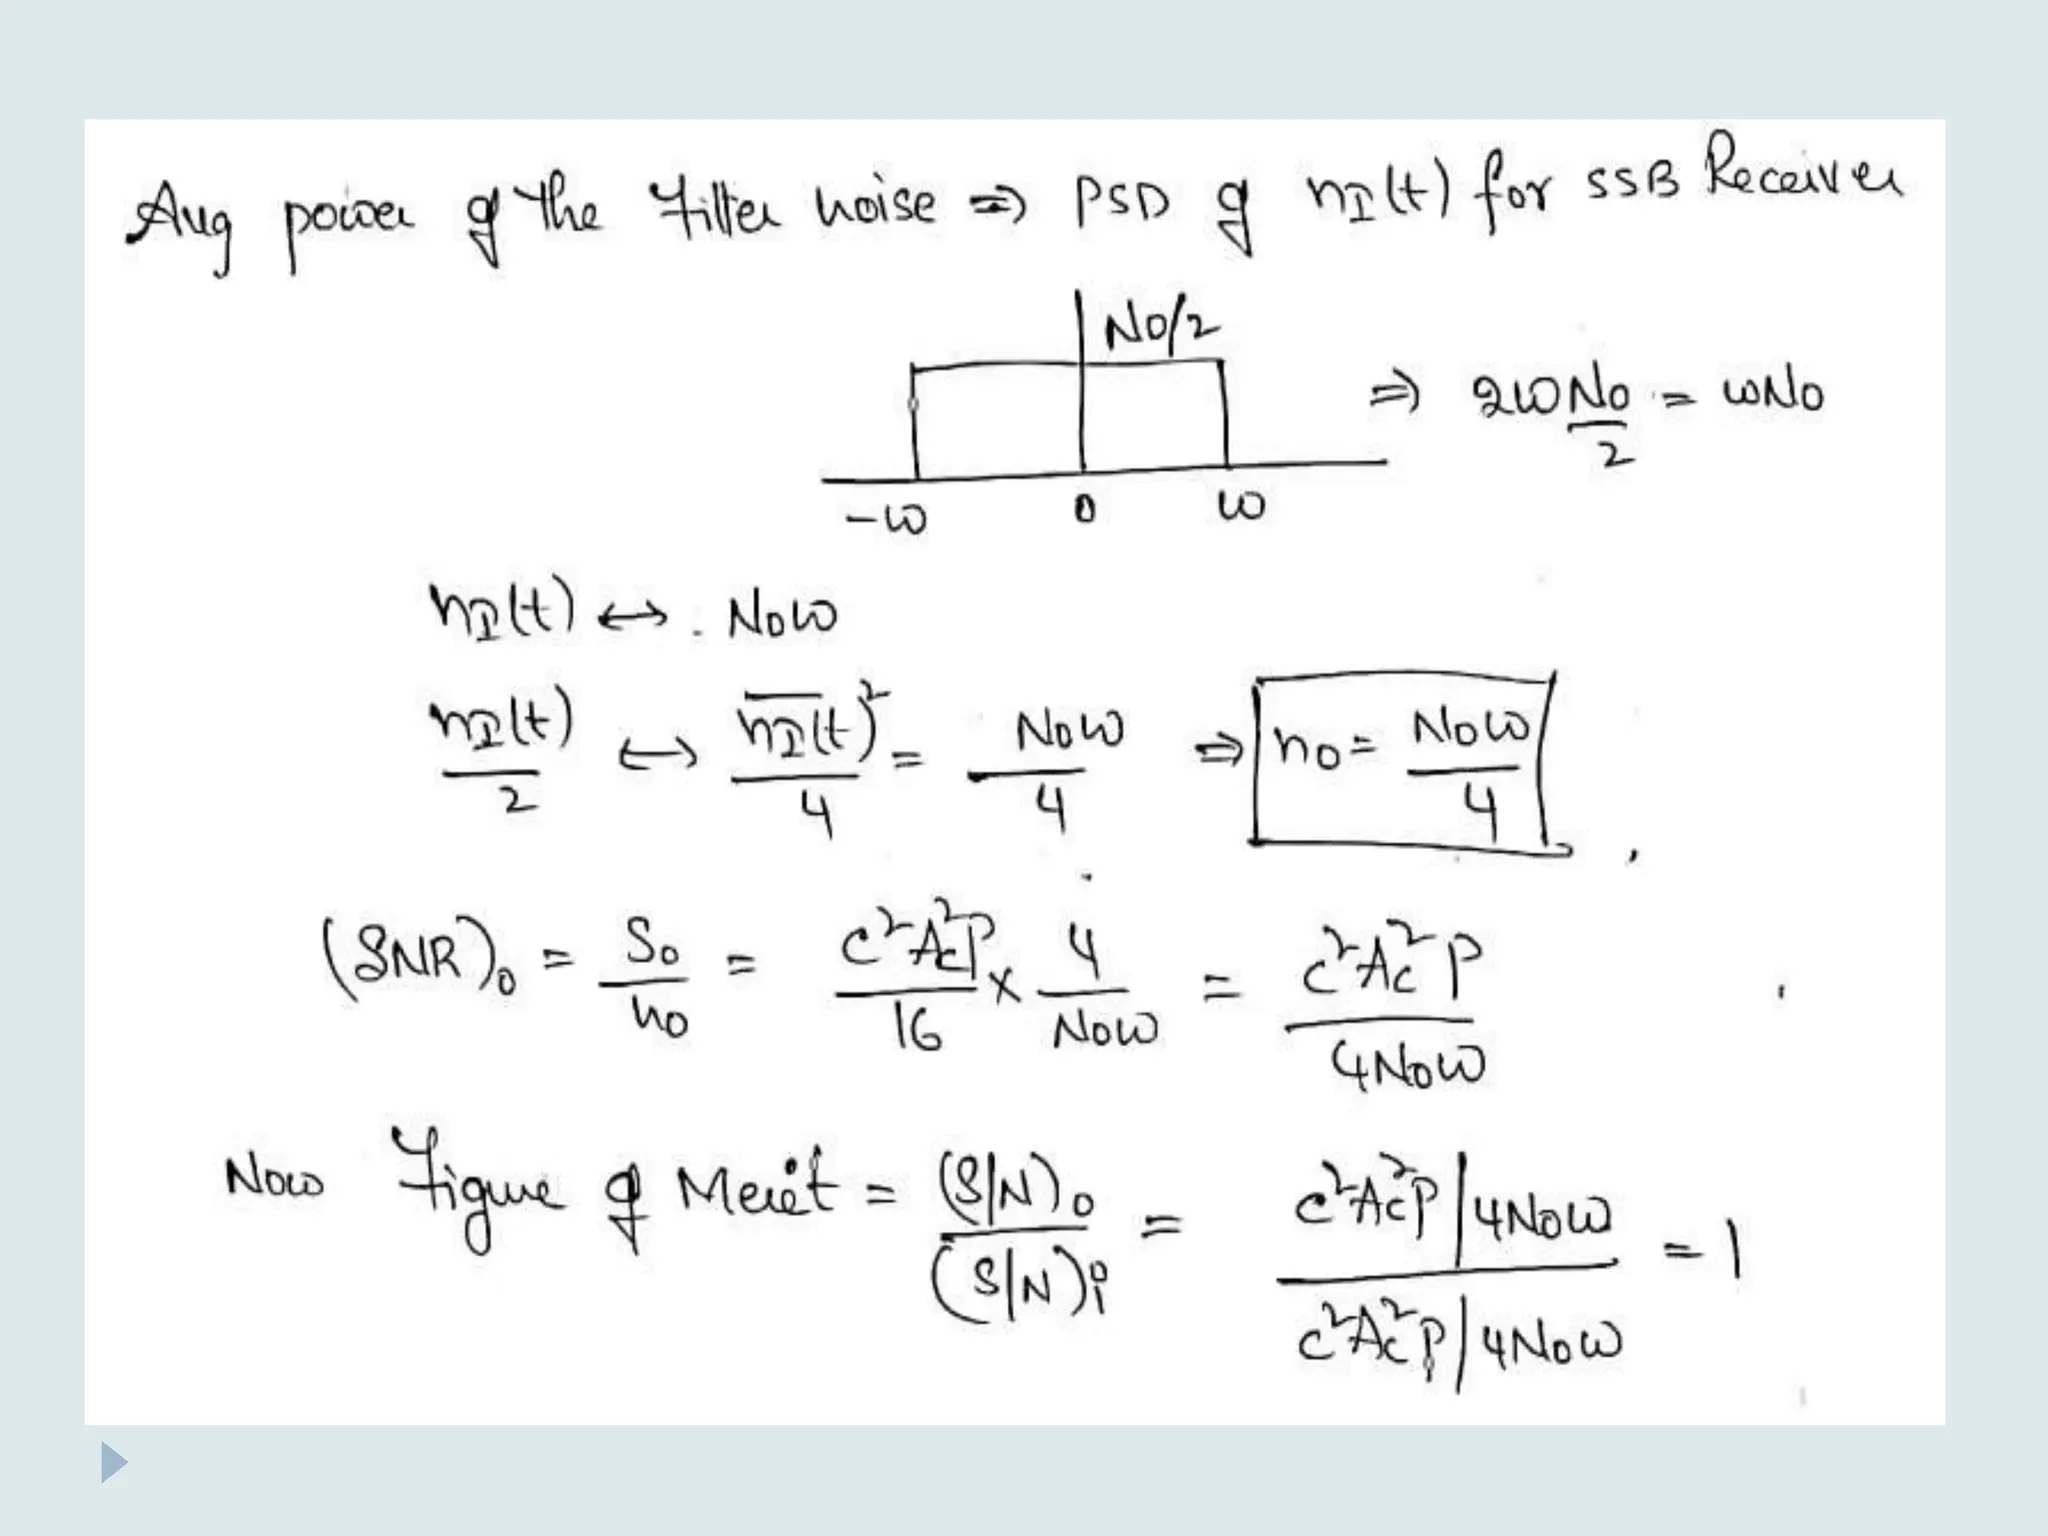 Avg power of the Filter noise ⇒ PSD of nI(t) for SSB Receiver
N0/2
⇒ 2W N0/2 = WN0
-W 0 W
nI(t) ↔ N0W
nI(t)/2 ↔ nI(t)²/4 = N0W/4 ⇒ n0 = N0W/4
(SNR)0 = S0/n0 = C²Ac²P/16 × 4/N0W = C²Ac²P/4N0W
Now Figure of Merit = (S/N)0/(S/N)i = C²Ac²P/4N0W / C²Ac²P/4N0W = 1